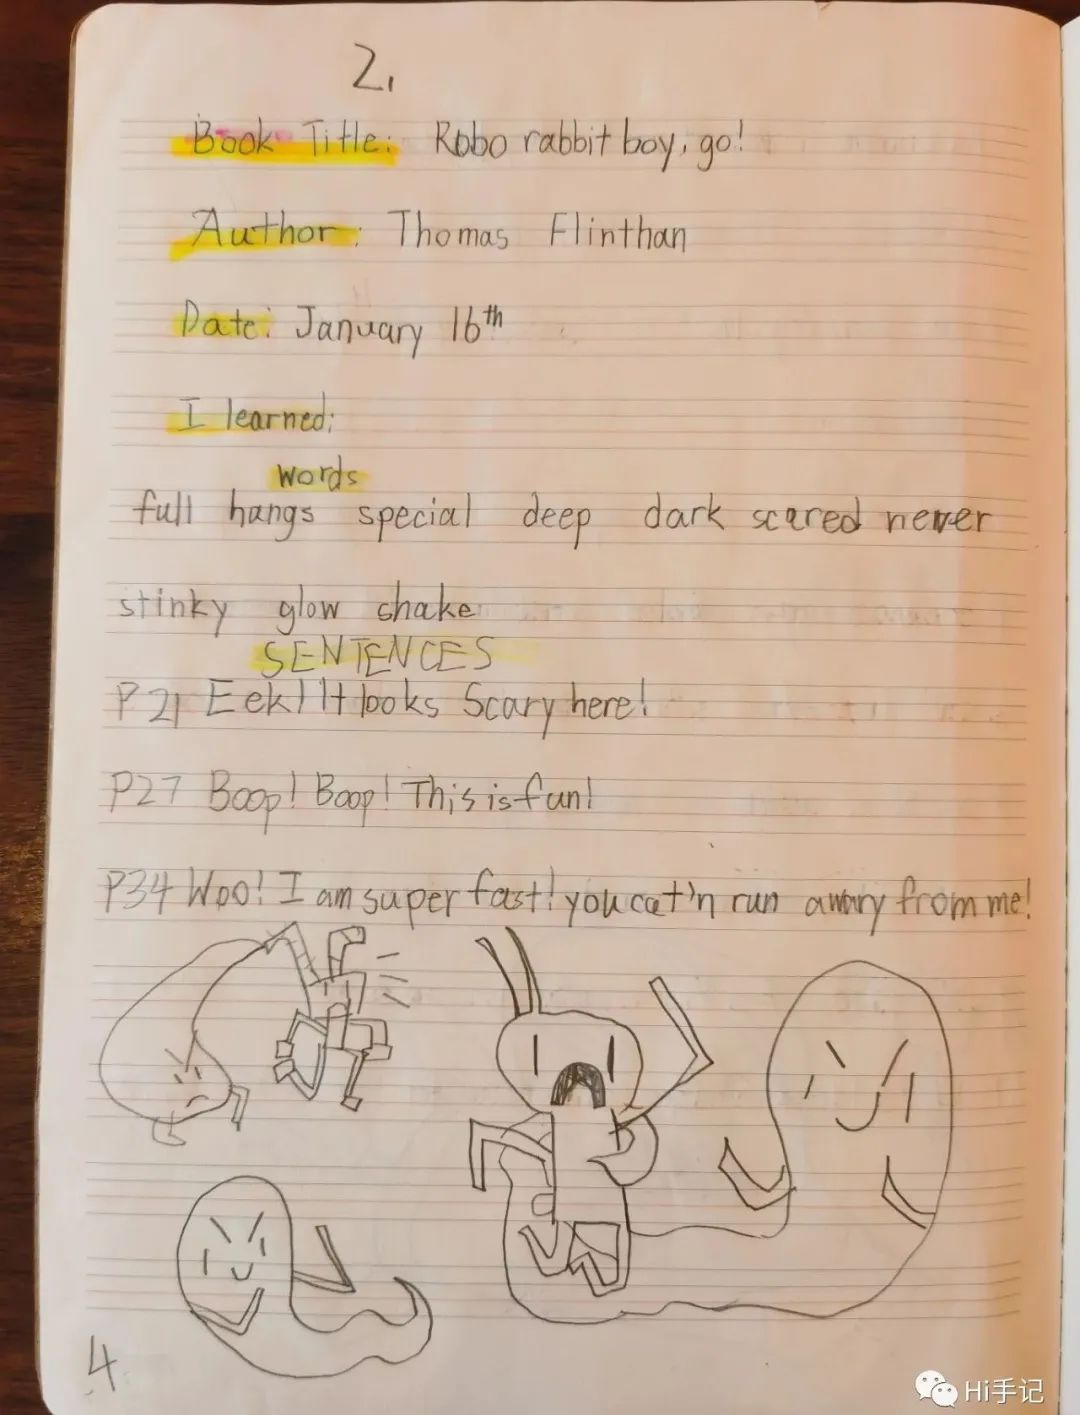 2.
Book Title: Robo rabbit boy, go!
Author: Thomas Flinthan
Date: January 16th
I learned:
words
full hangs special deep dark scared never
stinky glow shake
SENTENCES
P 21 Eek! It looks Scary here!
P27 Boop! Boop! This is fun!
P34 Woo! I am super fast! you cat'n run away from me!
4
Hi手记